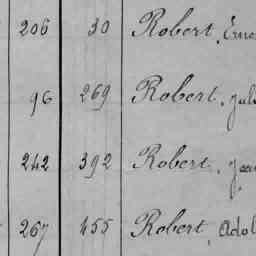 206 30 Robert, Erne
96 269 Robert, Jul
242 392 Robert, Jea
267 455 Robert, Adol